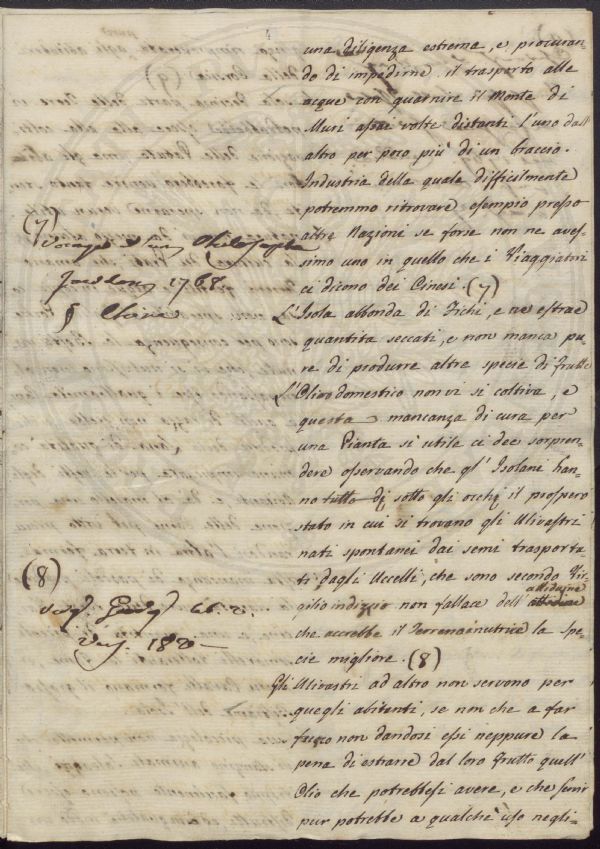 4
una diligenza estrema, e procuran-
do di impedirne il trasporto alle
acque con guarnire il Monte di
Muri assai volte distanti l'uno dall'
altro per poco più di un braccio.
Industria della quale difficilmente
potremmo ritrovare esempio presso
altre Nazioni se forse non ne aves-
simo uno in quello che i Viaggiatori
ci dicono dei Cinesi. (7)
L'Isola abbonda di Fichi, e ne estrae
quantita seccati, e non manca pu-
re di produrre altre specie di frutte
L'Olivo domestico non vi si coltiva, e
questa mancanza di cura per
una Pianta si utile ci dee sorpren-
dere osservando che gl' Isolani han-
no tutto di sotto gli occhi il prospero
stato in cui si trovano gli Ulivastri
nati spontanei dai semi trasporta-
ti dagli Uccelli, che sono secondo Vir-
gilio indizio non fallace dell'
che accrebbe il Terreno nutrice la spe-
cie migliore. (8)
Gli Ulivastri ad altro non servono per
quegli abitanti, se non che a far
fuoco non dandosi essi neppure la
pena di estrarre dal loro frutto quell'
Olio che potrebbesi avere, e che servir
pur potrebbe a qualche uso negli-
(7)
Voyage d'un Philosophe
Londres 1768.
§ Chine
(8)
Virg. Georg. Lib. 2.
Vers. 182